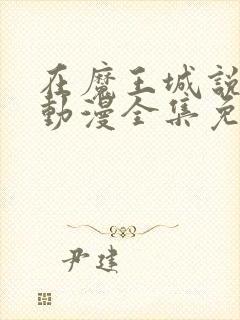 在魔王城説
動漫全集免
尹建